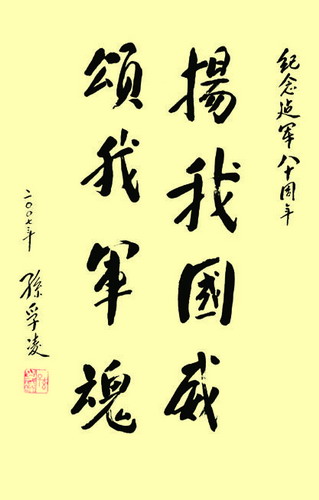 纪念建军八十周年
揚我國威
頌我軍魂
二〇〇七年
孫孚凌